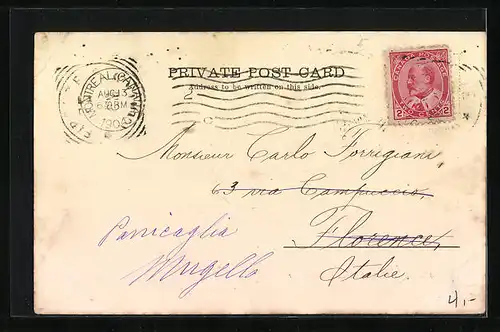 MONTREAL CANADA
AUG 13
PRIVATE POST CARD
Address to be written on this side.
CANADA POSTAGE
2 2
Monsieur Carlo Torrigiani
63 via Campuccio,
Florence,
Italie.
Panicaglia
Mugello
4,-